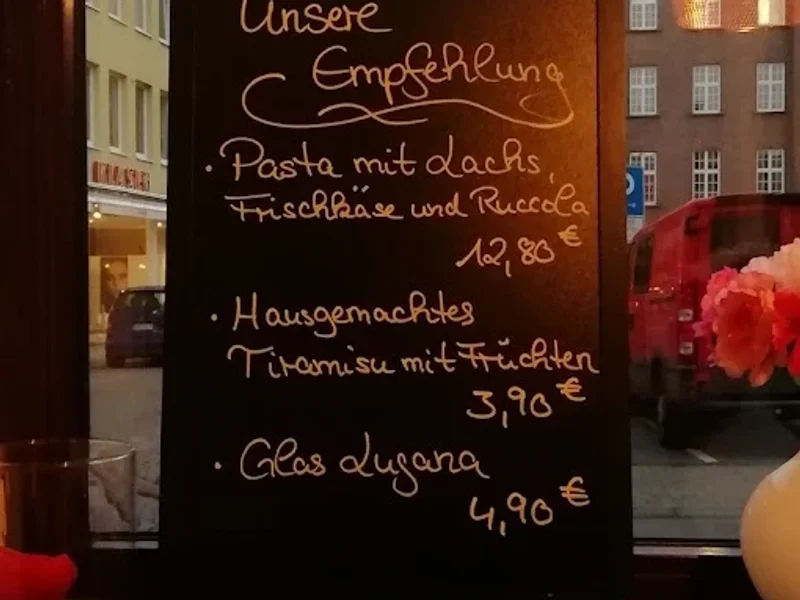 Unsere
Empfehlung
· Pasta mit Lachs,
Frischkäse und Ruccola
12,80 €
· Hausgemachtes
Tiramisu mit Früchten
3,90 €
· Glas Lugana
4,90 €